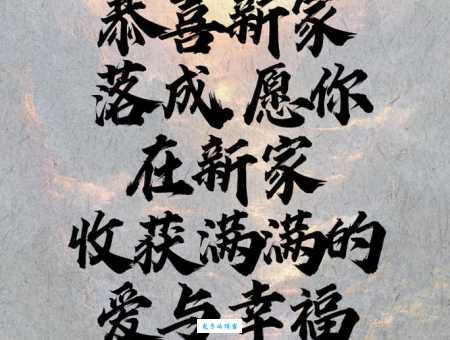 恭喜新家
落成,愿你
在新家
收获满满的
爱与幸福